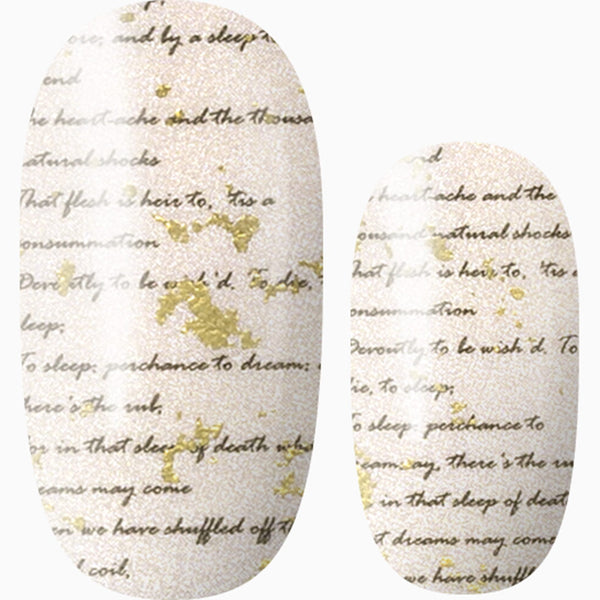 ore; and by a sleep t
end
he heart-ache and the thousa
atural shocks
That flesh is heir to, 'tis a
onsummation
Devoutly to be wish'd. To die, t
leep;
To sleep: perchance to dream: a
here's the rub;
or in that sleep of death wha
eams may come
en we have shuffled off t
l coil,
nd
heart-ache and the
ousand natural shocks
hat flesh is heir to, 'tis a
onsummation
Devoutly to be wish'd. To
ie, to sleep;
o sleep: perchance to
eam: ay, there's the ru
in that sleep of deat
t dreams may come
we have shuffl